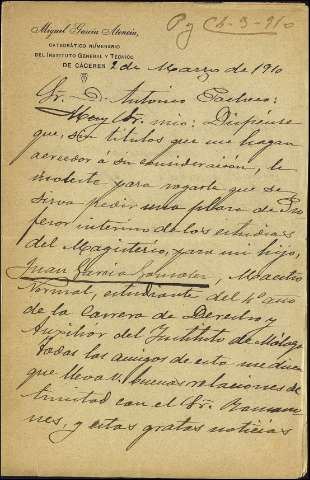 Miguel García Atencia,
CATEDRÁTICO NUMERARIO
DEL INSTITUTO GENERAL Y TÉCNICO
DE CÁCERES
2 de Marzo de 1910
Sr. D. Antonio Pacheco:
Muy Sr. mio: Dispénse
que, sin titulos que me hagan
acreedor á su consideración, le
moleste para rogarle que se
sirva pedir una plaza de Pro
fesor interino de los estudios
del Magisterio, para mi hijo,
Juan García González, Maestro
Normal, estudiante del 4º año
de la Carrera de Derecho y
Auxiliar del Instituto de Málaga
Todos los amigos de esta me dicen
que lleva V. buenas relaciones de
amistad con el Sr. Romano
nes, y estas gratas noticias